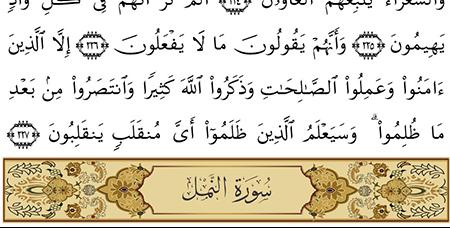 وَٱلشُّعَرَآءُ يَتَّبِعُهُمُ ٱلْغَاوُۥنَ ﴿٢٢٤﴾ أَلَمْ تَرَ أَنَّهُمْ فِى كُلِّ وَادٍ
يَهِيمُونَ ﴿٢٢٥﴾ وَأَنَّهُمْ يَقُولُونَ مَا لَا يَفْعَلُونَ ﴿٢٢٦﴾ إِلَّا ٱلَّذِينَ
ءَامَنُوا۟ وَعَمِلُوا۟ ٱلصَّـٰلِحَـٰتِ وَذَكَرُوا۟ ٱللَّهَ كَثِيرًا وَٱنتَصَرُوا۟ مِنۢ بَعْدِ
مَا ظُلِمُوا۟ ۗ وَسَيَعْلَمُ ٱلَّذِينَ ظَلَمُوٓا۟ أَىَّ مُنقَلَبٍ يَنقَلِبُونَ ﴿٢٢٧﴾
سُورَةُ النَّمْل